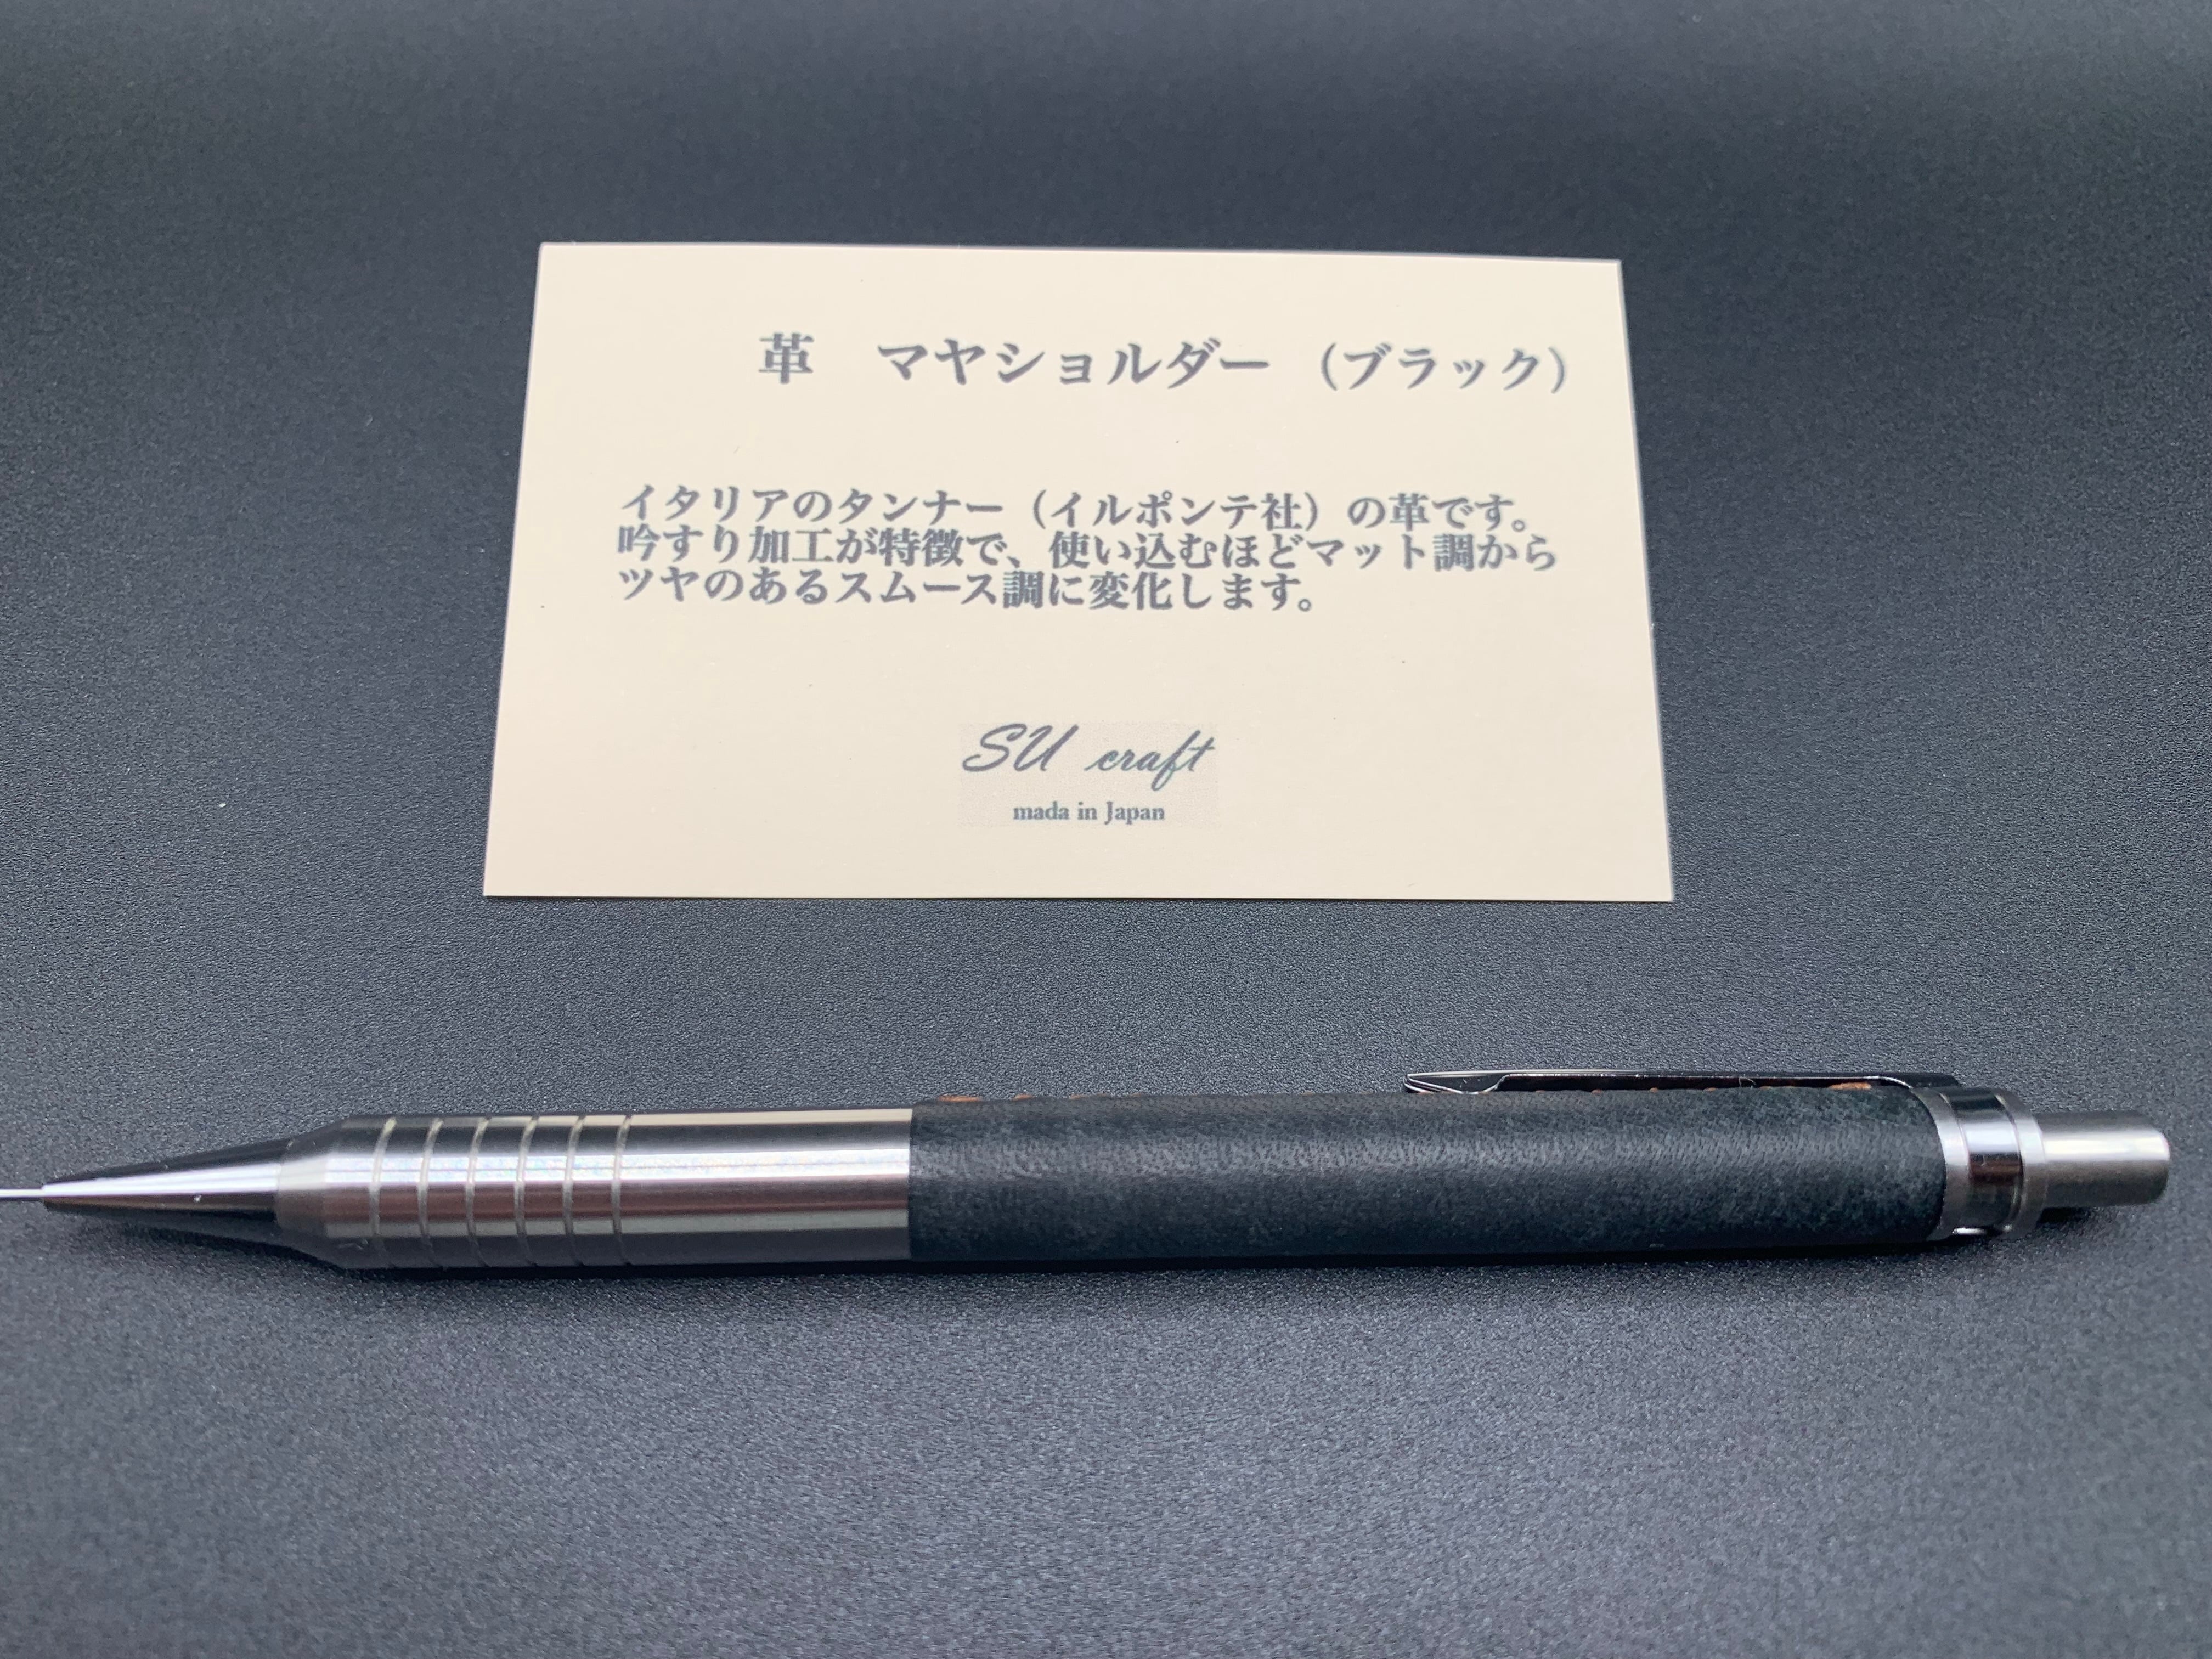 革　マヤショルダー（ブラック）
イタリアのタンナー（イルポンテ社）の革です。
吟すり加工が特徴で、使い込むほどマット調から
ツヤのあるスムース調に変化します。
SU craft
mada in Japan